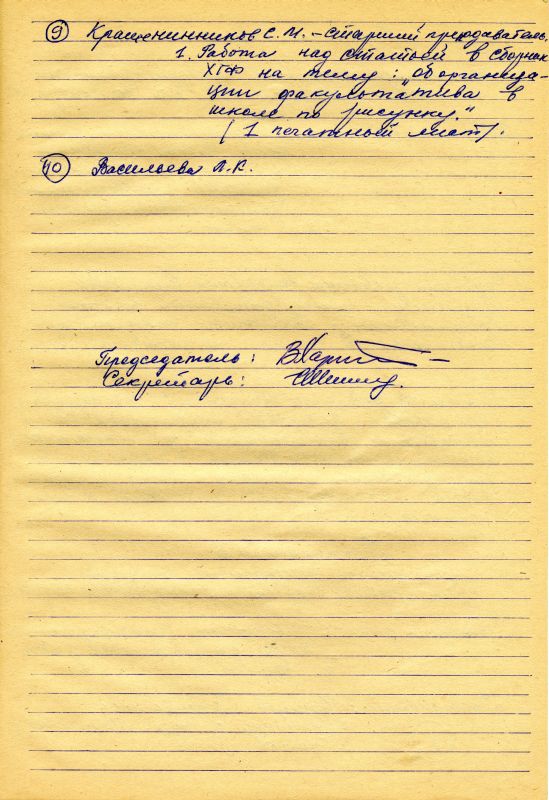 9 Кращенинников С. М. - старший преподаватель.
1. Работа над статьей в сборник
ХГФ на тему: „Об организа-
ции факультатива в
школе по рисунку."
(1 печатный лист).
10 Васильева Л. К.
Председатель:
Секретарь: